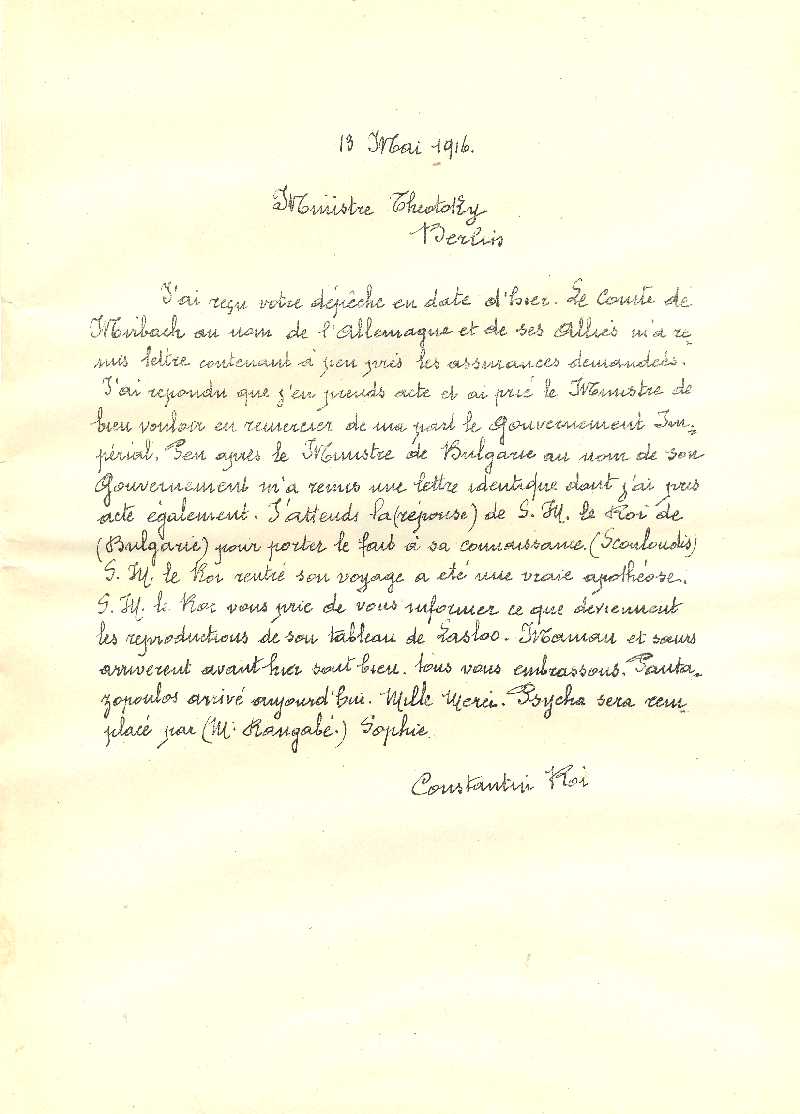 13 Mai 1916.
Ministre Theotoky
Berlin
J'ai reçu votre dépêche en date d'hier. Le Comte de
Mirbach au nom de l'Allemagne et de ses Alliés m'a re-
mis lettre contenant à peu près les assurances demandées.
J'ai repondu que j'en prends acte et ai prié le Ministre de
bien vouloir en remercier de ma part le Gouvernement Im-
périal. Peu après le Ministre de Bulgarie au nom de son
Gouvernement m'a remis une lettre identique dont j'ai pris
acte également. J'attends la (reponse) de S. M. le Roi de
(Bulgarie) pour porter le fait à sa connaissance. (Scouloudis)
S. M. le Roi rentré son voyage a eté une vraie apothéose.
S. M. le Roi vous prie de vous informer ce que deviennent
les reproductions de son tableau de Lasloo. Maman et sœurs
arriverent avant-hier sont bien. tous vous embrassons. Panta-
zopoulos arrivé aujourd'hui. Mille Merci. Psycha sera rem-
placé par (Mr. Rangabé.) Sophie.
Constantin Roi